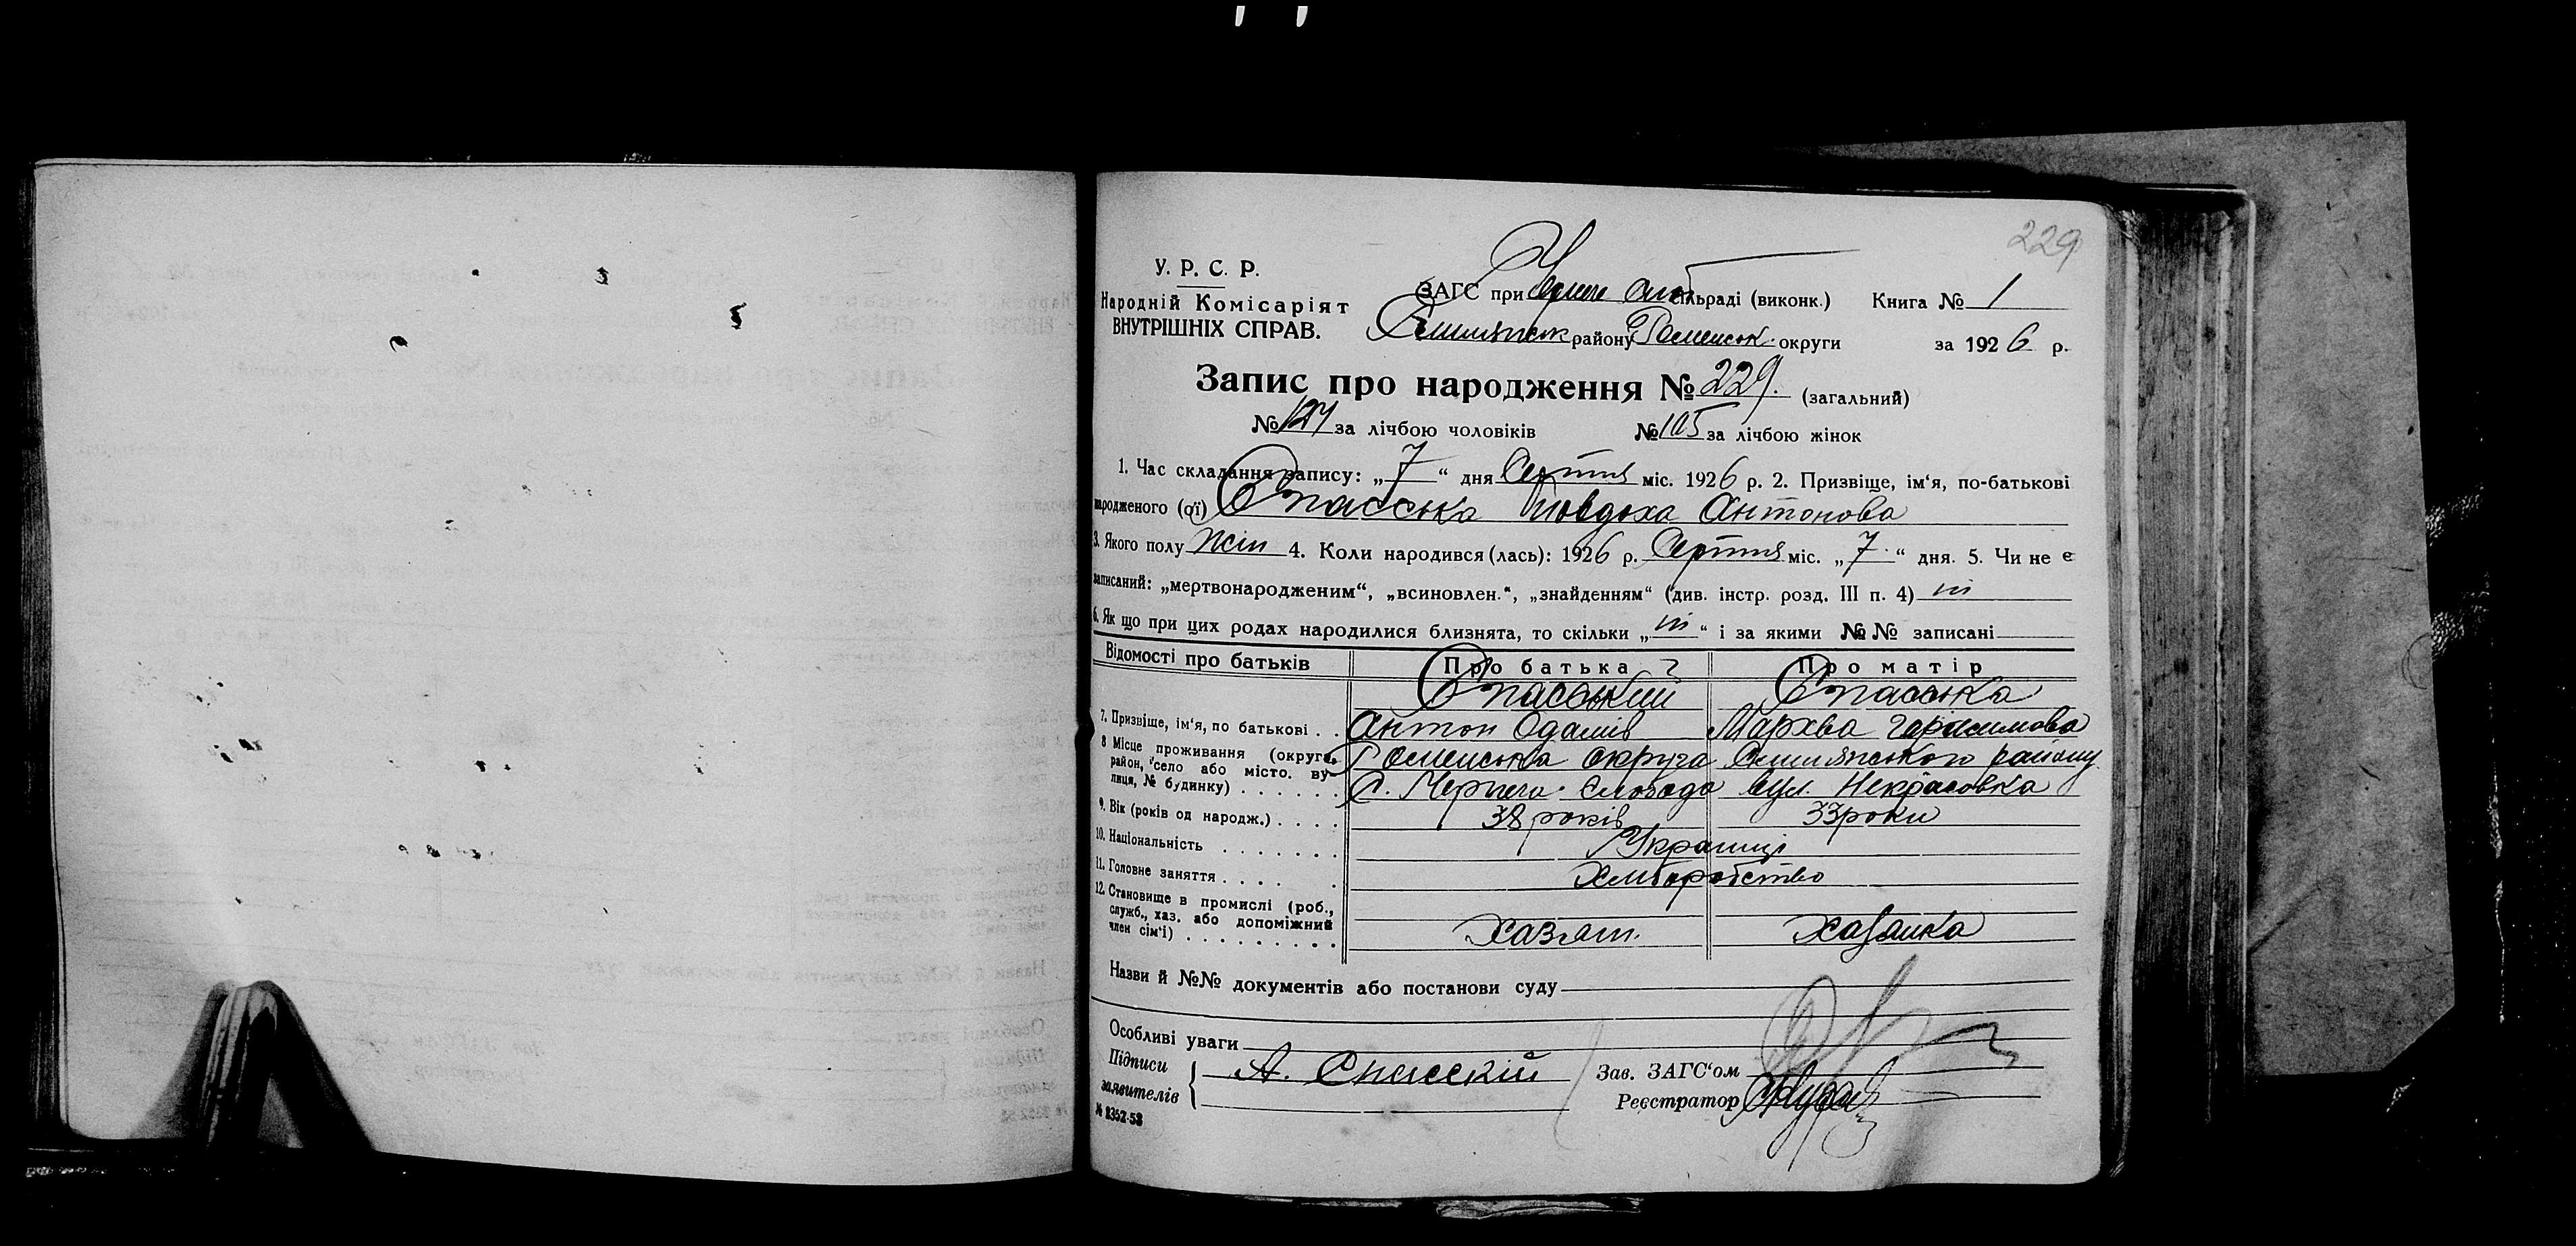 229
У. Р. С. Р.
Народній Комісаріят
ВНУТРІШНІХ СПРАВ.
ЗАГС при Черне Слоб сільраді (виконк.) Книга № 1
району Роменськ. округи за 1926 р.
Запис про народження № 229. (загальний)
№ 124 за лічбою чоловіків № 105 за лічбою жінок
1. Час складання запису: „7“ дня Серпня міс. 1926 р. 2. Призвіще, ім‘я, по-батькові
народженого (ої) Спасська Явдоха Антонова
3. Якого полу жін 4. Коли народився (лась): 1926 р. Серпня міс. „7.“ дня. 5. Чи не є
записаний: „мертвонародженим“, „всиновлен.“, „знайденням“ (див. інстр. розд. III п. 4) ні
6. Як що при цих родах народилися близнята, то скільки „ні“ і за якими №№ записані
Відомості про батьків Про батька Про матір
Спаський Спасська
7. Призвіще, ім‘я, по батькові . . Антон Одамів Мархва Гарасимова
8 Місце проживання (округа, Роменська округа Смілянського району
район, село або місто. ву- с. Чернеча Слобода вул. Некрасовка
лиця, № будинку) . . . . . .
9. Вік (років од народж.) . . . . 38 років 33 роки
10. Національність . . . . . . . Українці
11. Головне заняття . . . . . Хліборобство
12. Становище в промислі (роб.,
служб., хаз. або допоміжний
член сім‘ї) . . . . . . . . . хазяїн. хазяйка
Назви й №№ документів або постанови суду
Особливі уваги
Підписи А. Спасскій Зав. ЗАГС‘ом
заявителів Реєстратор
№ 2352-53